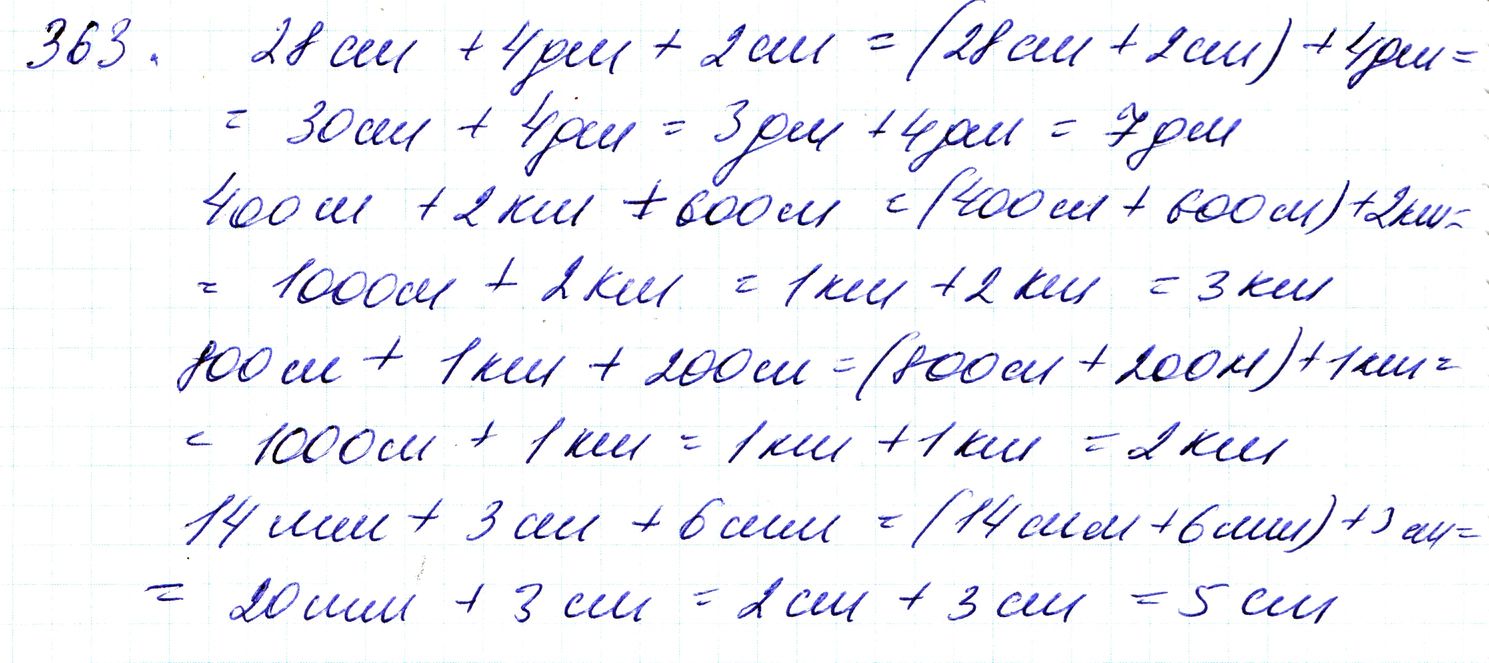 363. 28 см + 4 дм + 2 см = (28 см + 2 см) + 4 дм =
= 30 см + 4 дм = 3 дм + 4 дм = 7 дм
400 м + 2 км + 600 м = (400 м + 600 м) + 2 км =
= 1000 м + 2 км = 1 км + 2 км = 3 км
800 м + 1 км + 200 м = (800 м + 200 м) + 1 км =
= 1000 м + 1 км = 1 км + 1 км = 2 км
14 мм + 3 см + 6 мм = (14 мм + 6 мм) + 3 см =
= 20 мм + 3 см = 2 см + 3 см = 5 см